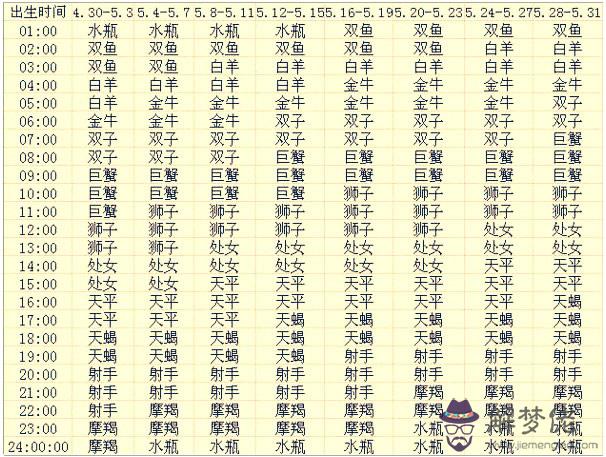 出生时间 4.30-5.3 5.4-5.7 5.8-5.11 5.12-5.15 5.16-5.19 5.20-5.23 5.24-5.27 5.28-5.31
01:00 水瓶 水瓶 水瓶 水瓶 双鱼 双鱼 双鱼 双鱼
02:00 双鱼 双鱼 双鱼 双鱼 双鱼 双鱼 白羊 白羊
03:00 双鱼 双鱼 白羊 白羊 白羊 白羊 白羊 白羊
04:00 白羊 白羊 白羊 白羊 金牛 金牛 金牛 金牛
05:00 白羊 金牛 金牛 金牛 金牛 金牛 金牛 双子
06:00 金牛 金牛 金牛 双子 双子 双子 双子 双子
07:00 双子 双子 双子 双子 双子 双子 双子 巨蟹
08:00 双子 双子 双子 巨蟹 巨蟹 巨蟹 巨蟹 巨蟹
09:00 巨蟹 巨蟹 巨蟹 巨蟹 巨蟹 巨蟹 巨蟹 巨蟹
10:00 巨蟹 巨蟹 巨蟹 巨蟹 狮子 狮子 狮子 狮子
11:00 巨蟹 狮子 狮子 狮子 狮子 狮子 狮子 狮子
12:00 狮子 狮子 狮子 狮子 狮子 狮子 处女 处女
13:00 狮子 狮子 处女 处女 处女 处女 处女 处女
14:00 处女 处女 处女 处女 处女 处女 天平 天平
15:00 处女 处女 天平 天平 天平 天平 天平 天平
16:00 天平 天平 天平 天平 天平 天平 天平 天蝎
17:00 天平 天平 天平 天蝎 天蝎 天蝎 天蝎 天蝎
18:00 天蝎 天蝎 天蝎 天蝎 天蝎 天蝎 天蝎 天蝎
19:00 天蝎 天蝎 天蝎 天蝎 射手 射手 射手 射手
20:00 射手 射手 射手 射手 射手 射手 射手 射手
21:00 射手 射手 射手 射手 射手 摩羯 摩羯 摩羯
22:00 射手 摩羯 摩羯 摩羯 摩羯 摩羯
23:00 摩羯 摩羯 摩羯 摩羯 摩羯 水瓶
24:00:00 摩羯 水瓶 水瓶 水瓶 水瓶 水瓶 水瓶 水瓶
解梦佬